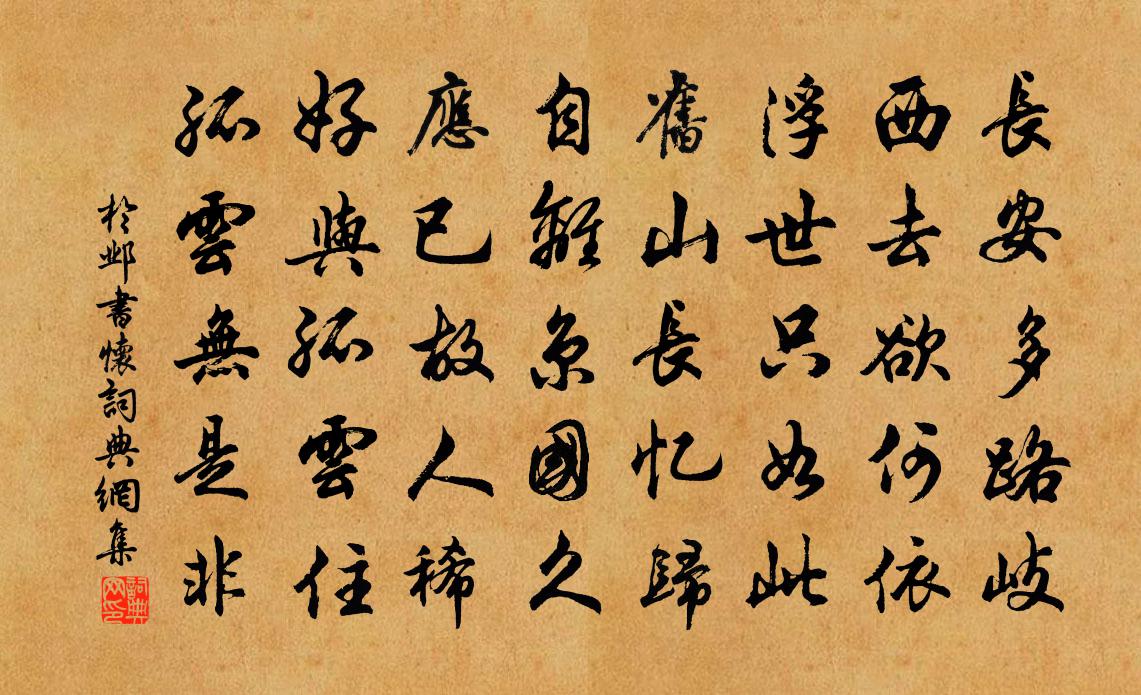 長安多路岐
西去欲何依
浮世只如此
舊山長忆歸
自離京國久
應已故人稀
好與孤雲住
孤雲無是非
於邺書懷詞典網集
詞典
网印